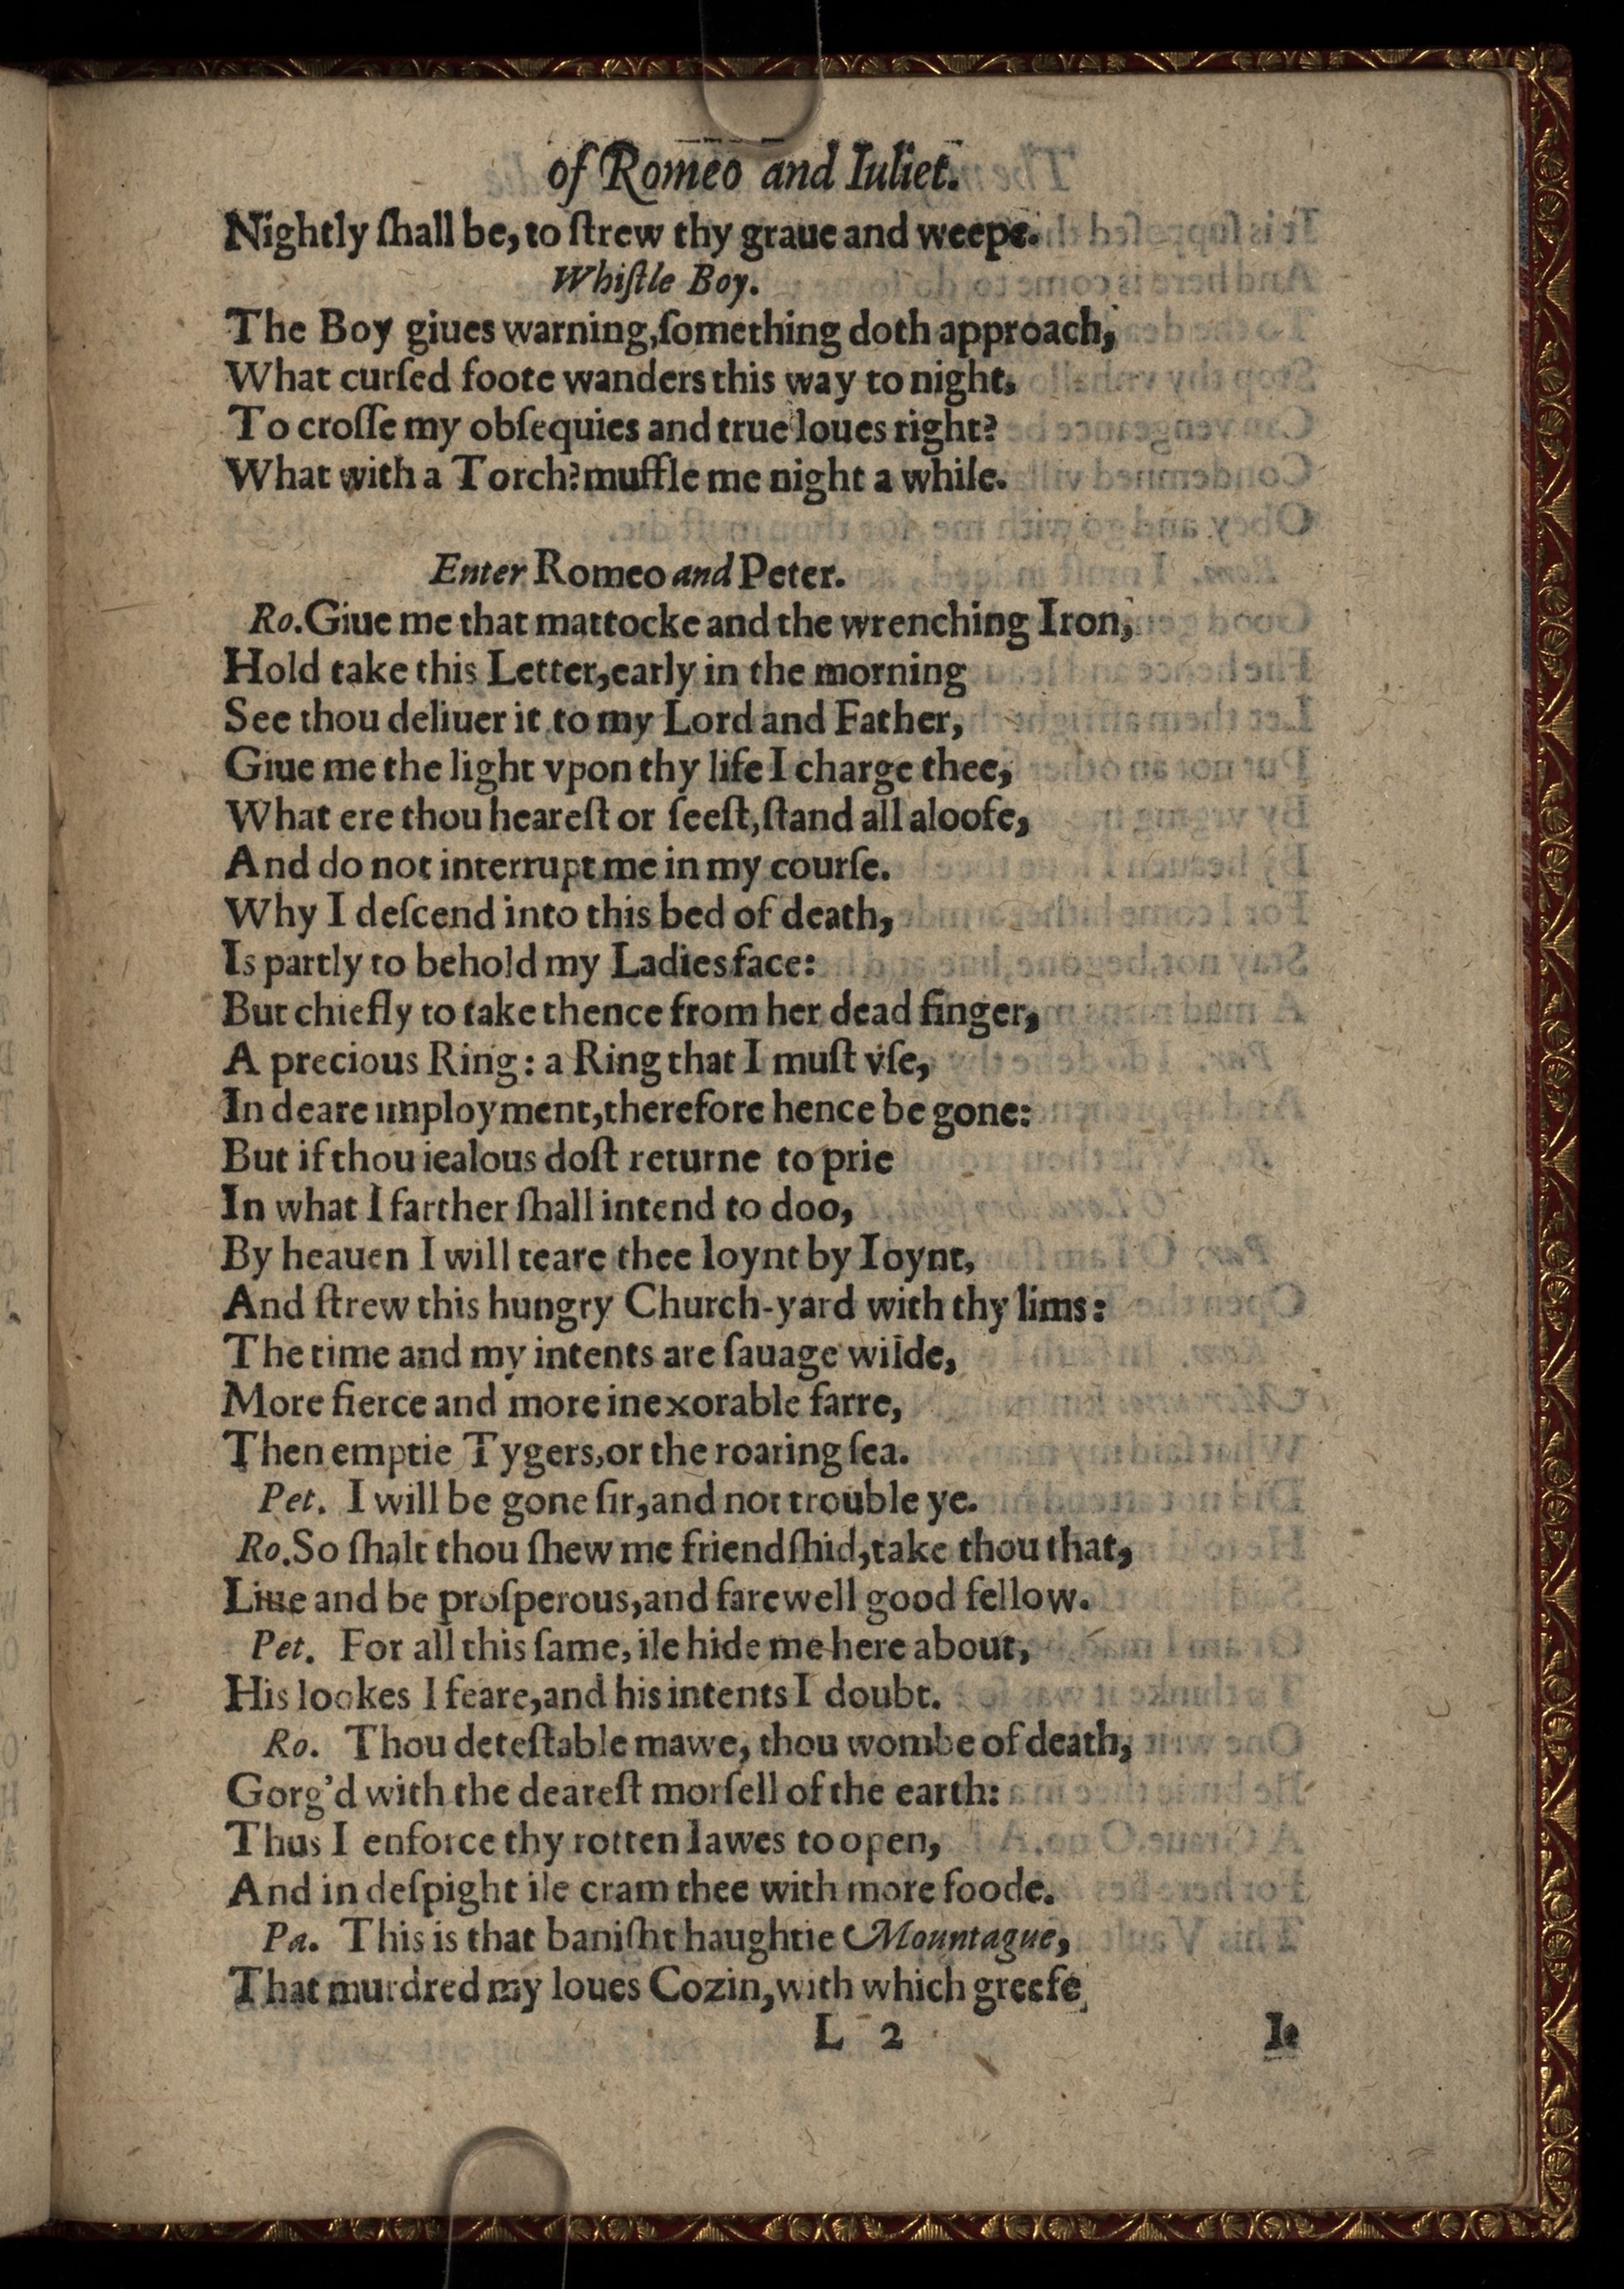 of Romeo and Iuliet.
Nightly ſhall be, to ſtrew thy graue and weepe.
Whiſtle Boy.
The Boy giues warning, ſomething doth approach,
What curſed foote wanders this way to night,
To croſſe my obſequies and true loues right?
What with a Torch? muffle me night a while.
Enter Romeo and Peter.
Ro. Giue me that mattocke and the wrenching Iron,
Hold take this Letter, early in the morning
See thou deliuer it to my Lord and Father,
Giue me the light vpon thy life I charge thee,
What ere thou heareſt or ſeeſt, ſtand all aloofe,
And do not interrupt me in my courſe.
Why I deſcend into this bed of death,
Is partly to behold my Ladies face:
But chiefly to take thence from her dead finger,
A precious Ring: a Ring that I muſt vſe,
In deare imployment, therefore hence be gone:
But if thou iealous doſt returne to prie
In what I farther ſhall intend to doo,
By heauen I will teare thee Ioynt by Ioynt,
And ſtrew this hungry Church-yard with thy lims:
The time and my intents are ſauage wilde,
More fierce and more inexorable farre,
Then emptie Tygers, or the roaring ſea.
Pet. I will be gone ſir, and not trouble ye.
Ro. So ſhalt thou ſhew me friendſhid, take thou that,
Liue and be proſperous, and farewell good fellow.
Pet. For all this ſame, ile hide me here about,
His lookes I feare, and his intents I doubt.
Ro. Thou deteſtable mawe, thou wombe of death,
Gorg'd with the deareſt morſell of the earth:
Thus I enforce thy rotten Iawes to open,
And in deſpight ile cram thee with more foode.
Pa. This is that baniſht haughtie Mountague,
That murdred my loues Cozin, with which greefe
L 2 It